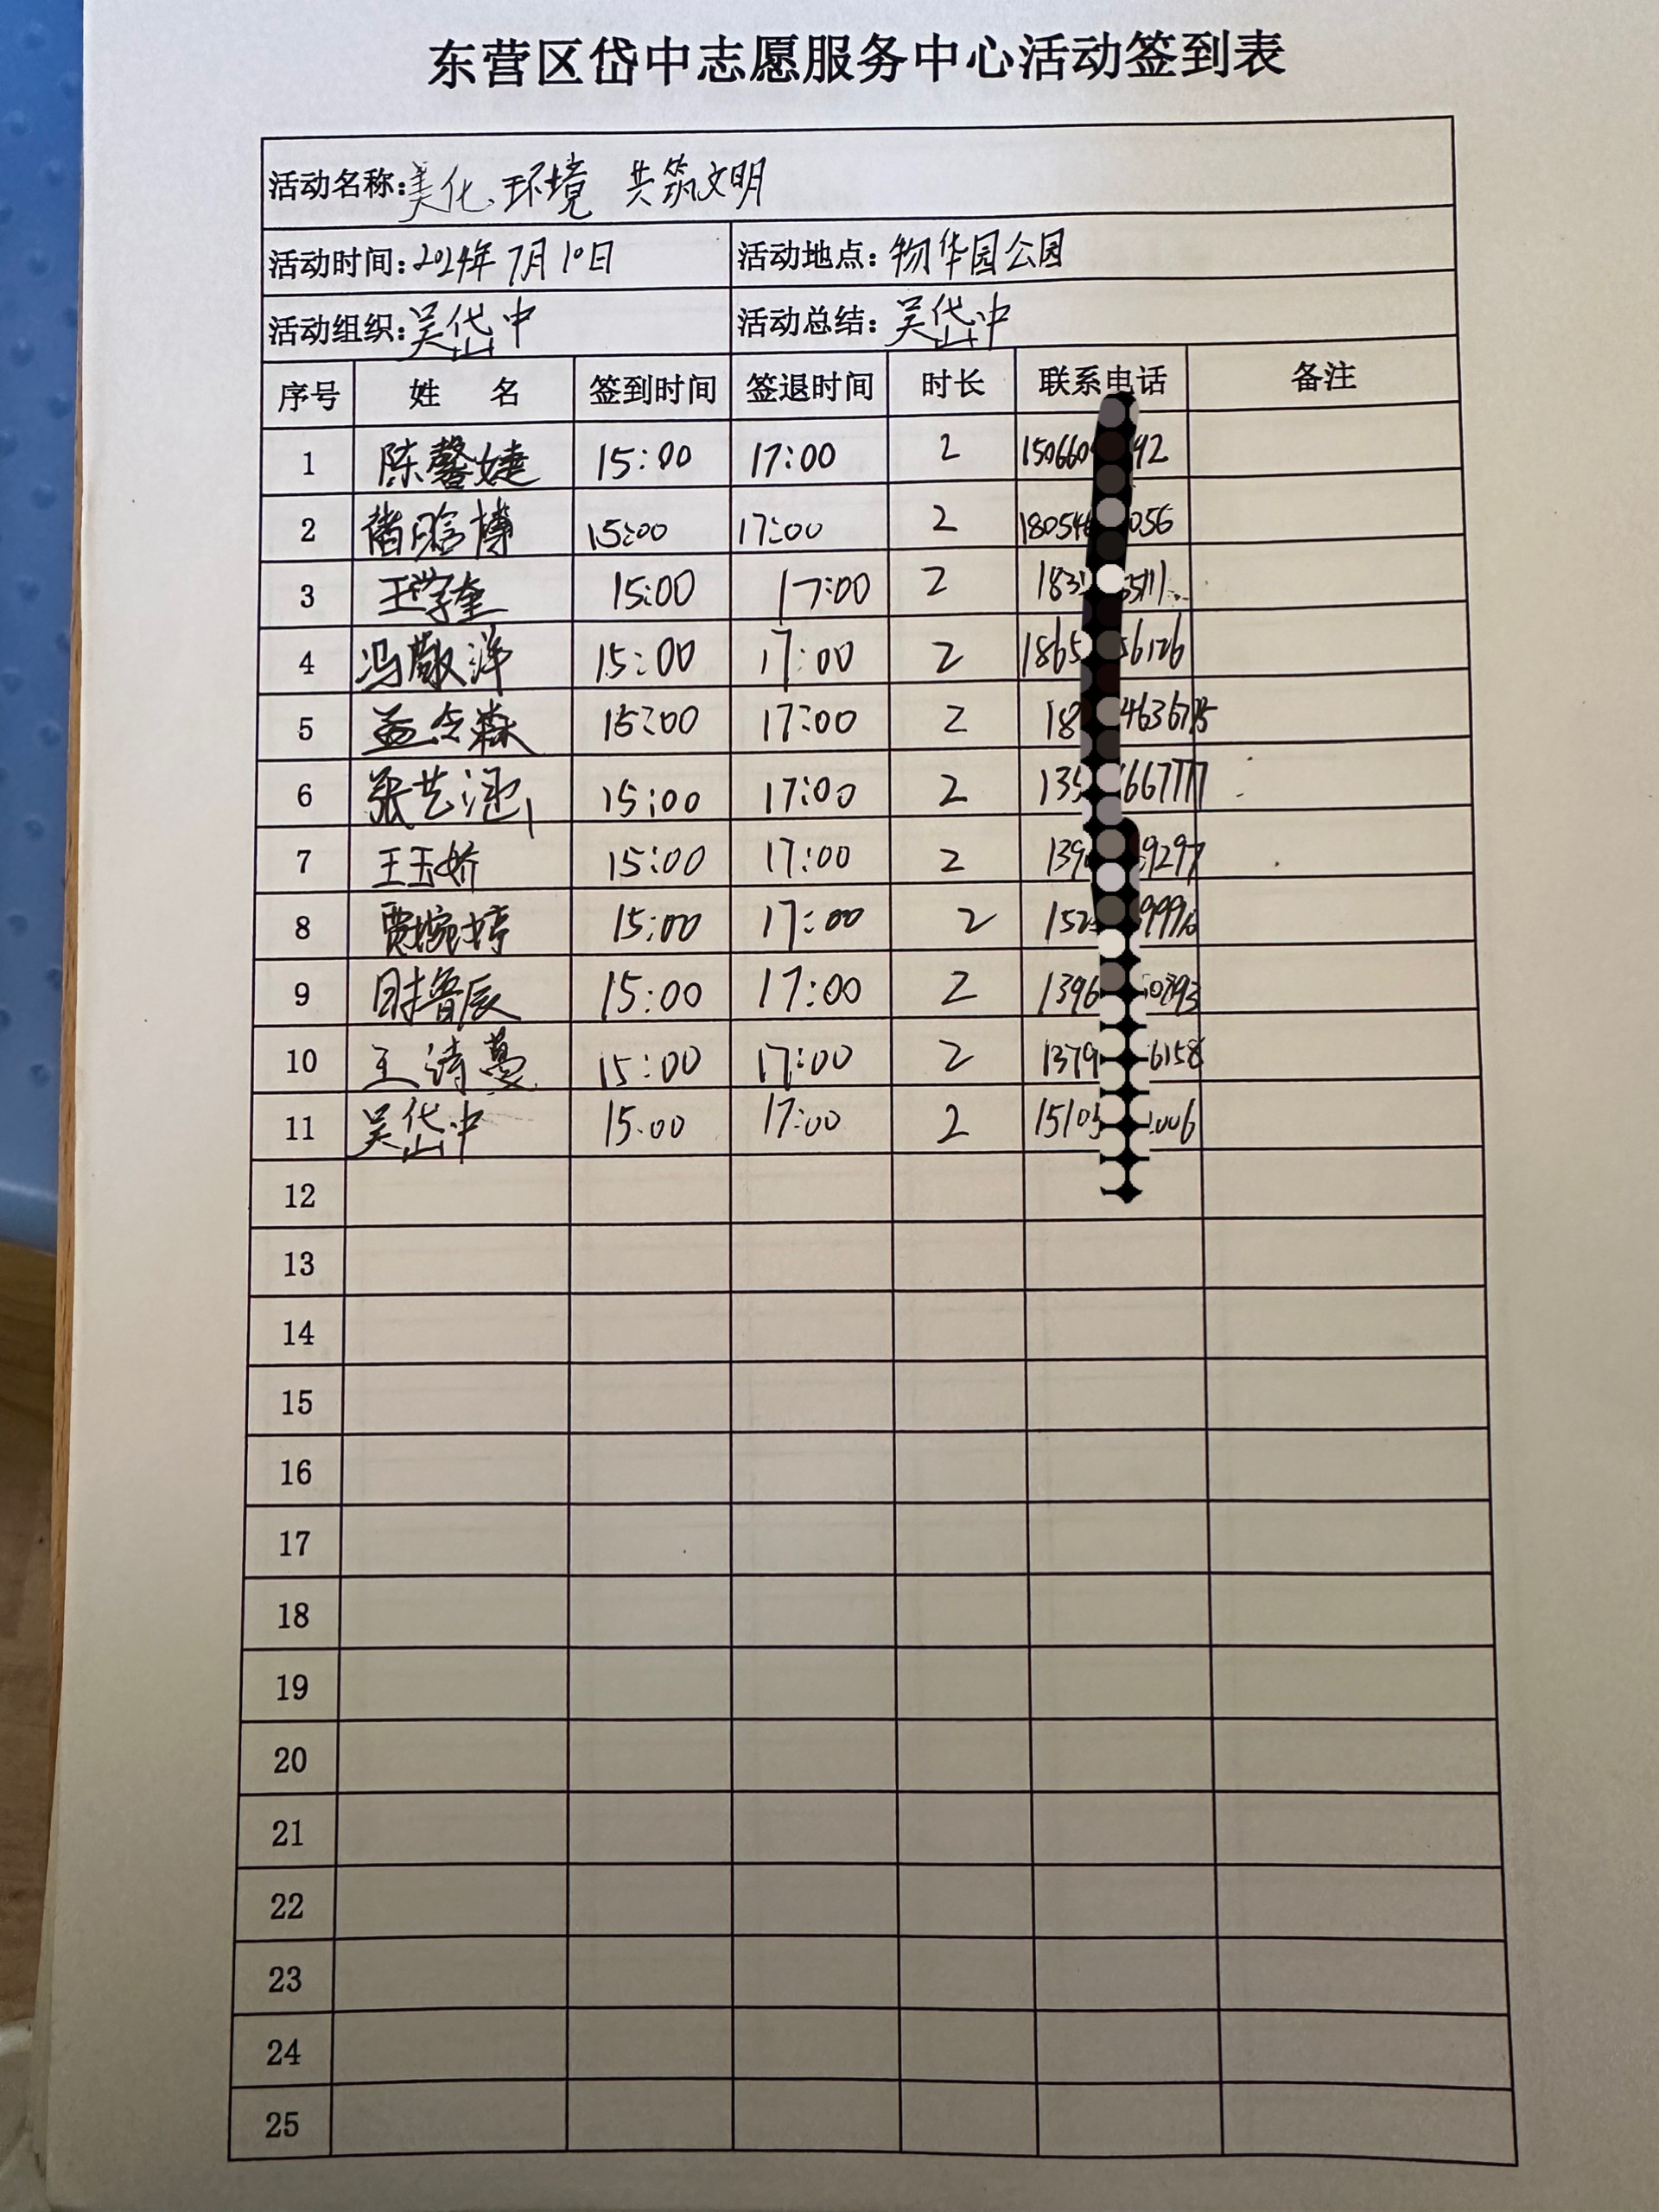 东营区岱中志愿服务中心活动签到表
活动名称:美化环境 共筑文明
活动时间:2024年7月10日 活动地点:物华园公园
活动组织:吴岱中 活动总结:吴岱中
序号 姓 名 签到时间 签退时间 时长 联系电话 备注
1 陈馨婕 15:00 17:00 2 150660 92
2 博 15:00 17:00 2 180546 056
3 王学奎 15:00 17:00 2 183 5111
4 冯敬洋 15:00 17:00 2 1865 6126
5 孟令森 15:00 17:00 2 18 46367
6 张艺涵 15:00 17:00 2 135 667777
7 王玉娇 15:00 17:00 2 139 9297
8 贾婉婷 15:00 17:00 2 152 999
9 鲁辰 15:00 17:00 2 1396 0393
10 王诗蔓 15:00 17:00 2 1379 6158
11 吴岱中 15:00 17:00 2 15105 006
12
13
14
15
16
17
18
19
20
21
22
23
24
25